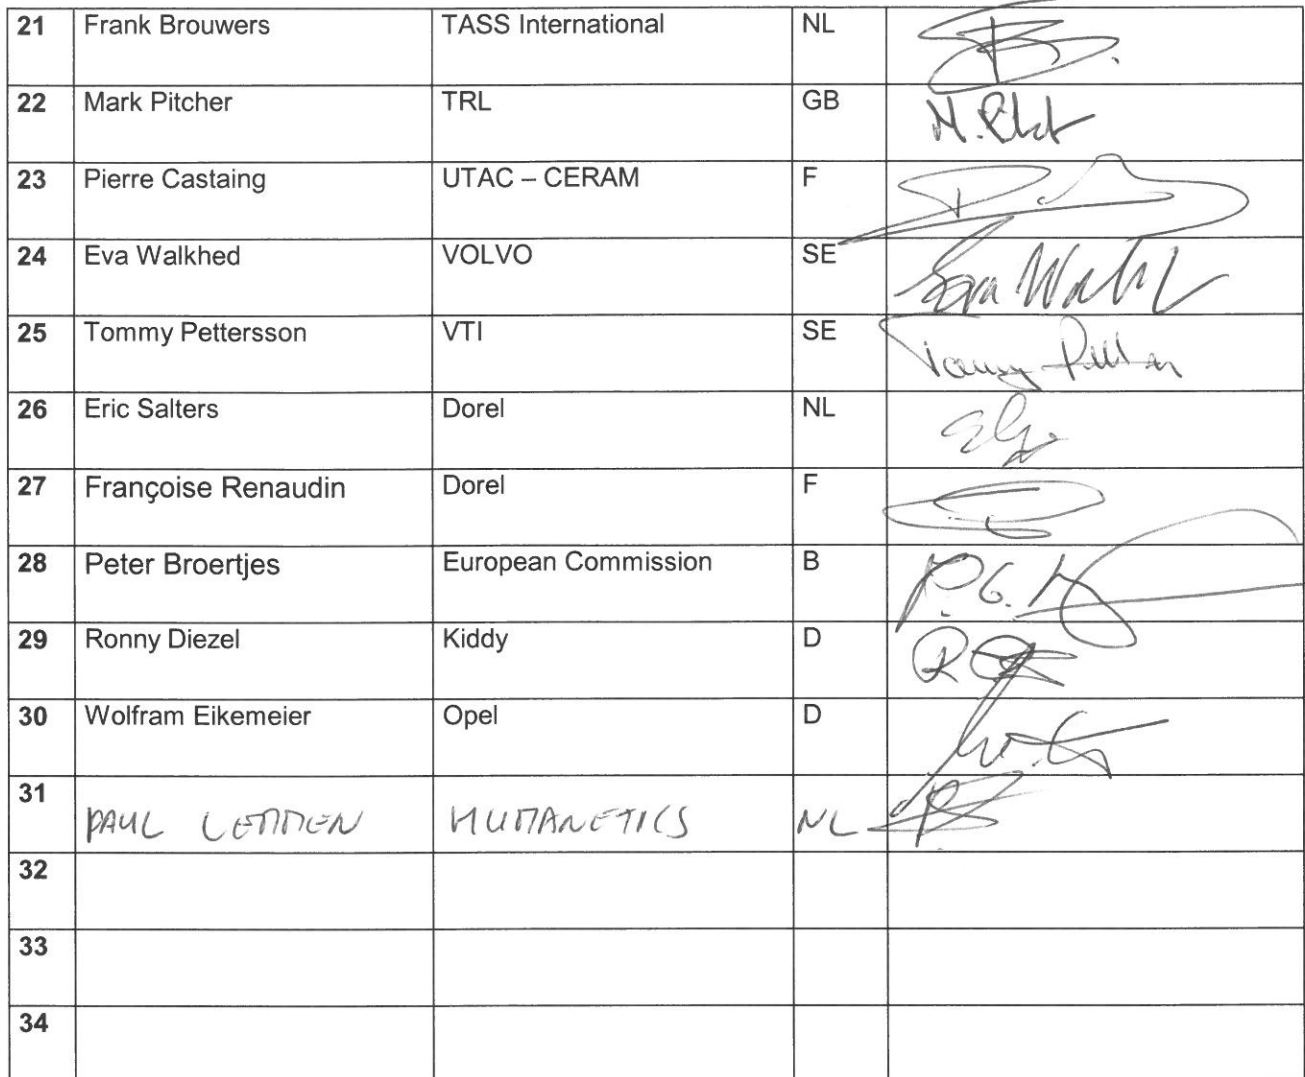 21 Frank Brouwers TASS International NL
22 Mark Pitcher TRL GB
23 Pierre Castaing UTAC – CERAM F
24 Eva Walkhed VOLVO SE
25 Tommy Pettersson VTI SE
26 Eric Salters Dorel NL
27 Françoise Renaudin Dorel F
28 Peter Broertjes European Commission B
29 Ronny Diezel Kiddy D
30 Wolfram Eikemeier Opel D
31 PAUL LEMMEN HUMANETICS NL
32
33
34